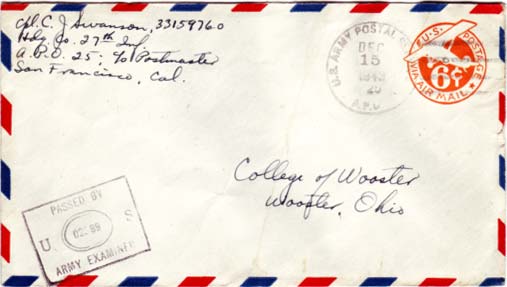 Cpl. C. J Swanson, 33159760
Hdq Co. 27th Inf.
A.P.O. 25, c/o Postmaster
San Francisco, Cal.
U.S. ARMY POSTAL
DEC
15
1943
A.P.O.
U.S. POSTAGE
6¢
VIA AIR MAIL
College of Wooster
Wooster, Ohio
PASSED BY
U. S
ARMY EXAMINER